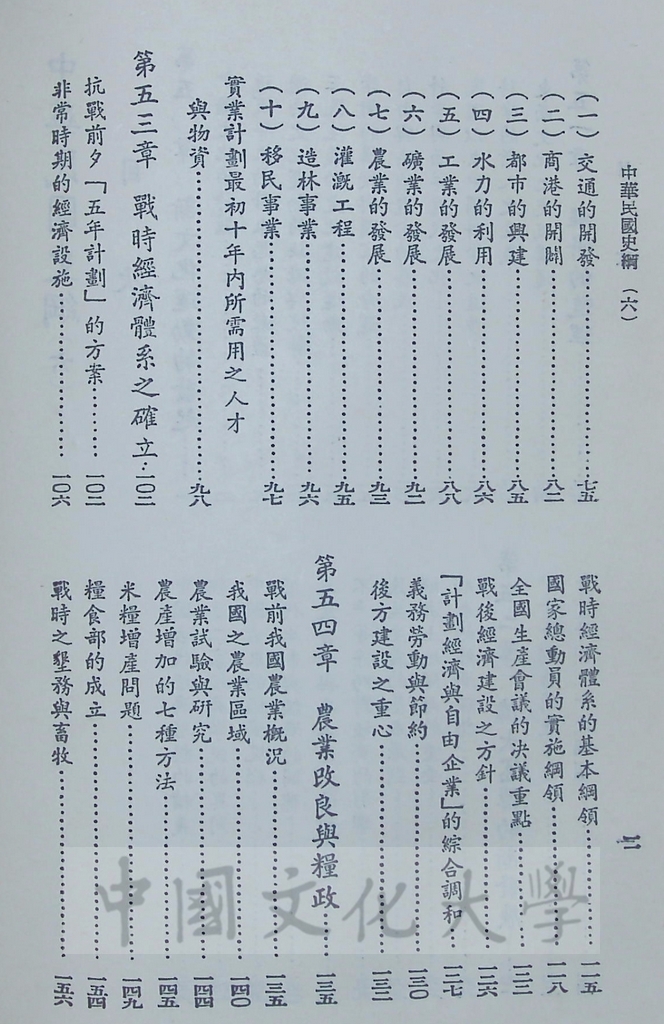 中華民國史綱（六）
二
（一）交通的開發……七五
（二）商港的開闢……八二
（三）都市的興建……八五
（四）水力的利用……八六
（五）工業的發展……八八
（六）礦業的發展……九二
（七）農業的發展……九三
（八）灌溉工程……九五
（九）造林事業……九六
（十）移民事業……九七
實業計劃最初十年內所需用之人才
與物資……九八
第五三章　戰時經濟體系之確立…一〇二
抗戰前夕「五年計劃」的方案……一〇二
非常時期的經濟設施……一〇六
戰時經濟體系的基本綱領……一一五
國家總動員的實施綱領……一一八
全國生產會議的決議重點……一二二
戰後經濟建設之方針……一二六
「計劃經濟與自由企業」的綜合調和…一二七
義務勞動與節約……一三〇
後方建設之重心……一三二
第五四章　農業改良與糧政……一三五
戰前我國農業概況……一三五
我國之農業區域……一四〇
農業試驗與研究……一四四
農產增加的七種方法……一四五
米糧增產問題……一四九
糧食部的成立……一五四
戰時之墾務與畜牧……一五六
中國文化大學